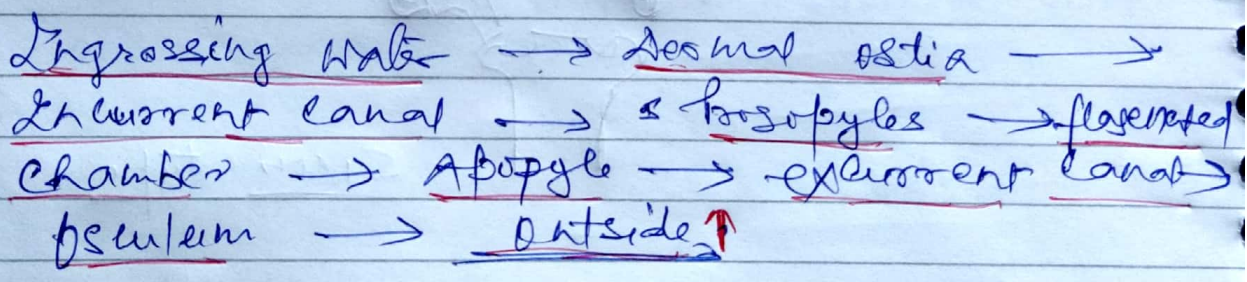 Ingrossing water → Dermal ostia →
Incurrent canal → Prosopyles → flagellated
chamber → Apopyle → excurrent canal →
Osculum → Outside ↑